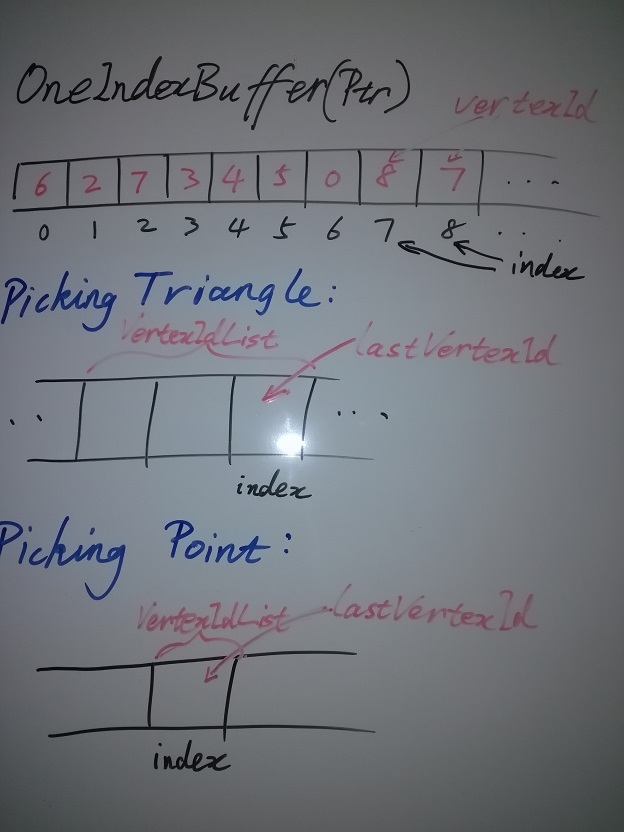 OneIndexBuffer(Ptr)
vertexId
6 2 7 3 4 5 0 8 7 ...
0 1 2 3 4 5 6 7 8 ...
index
Picking Triangle:
VertexIdList
lastVertexId
.. ...
index
Picking Point:
VertexIdList
lastVertexId
index